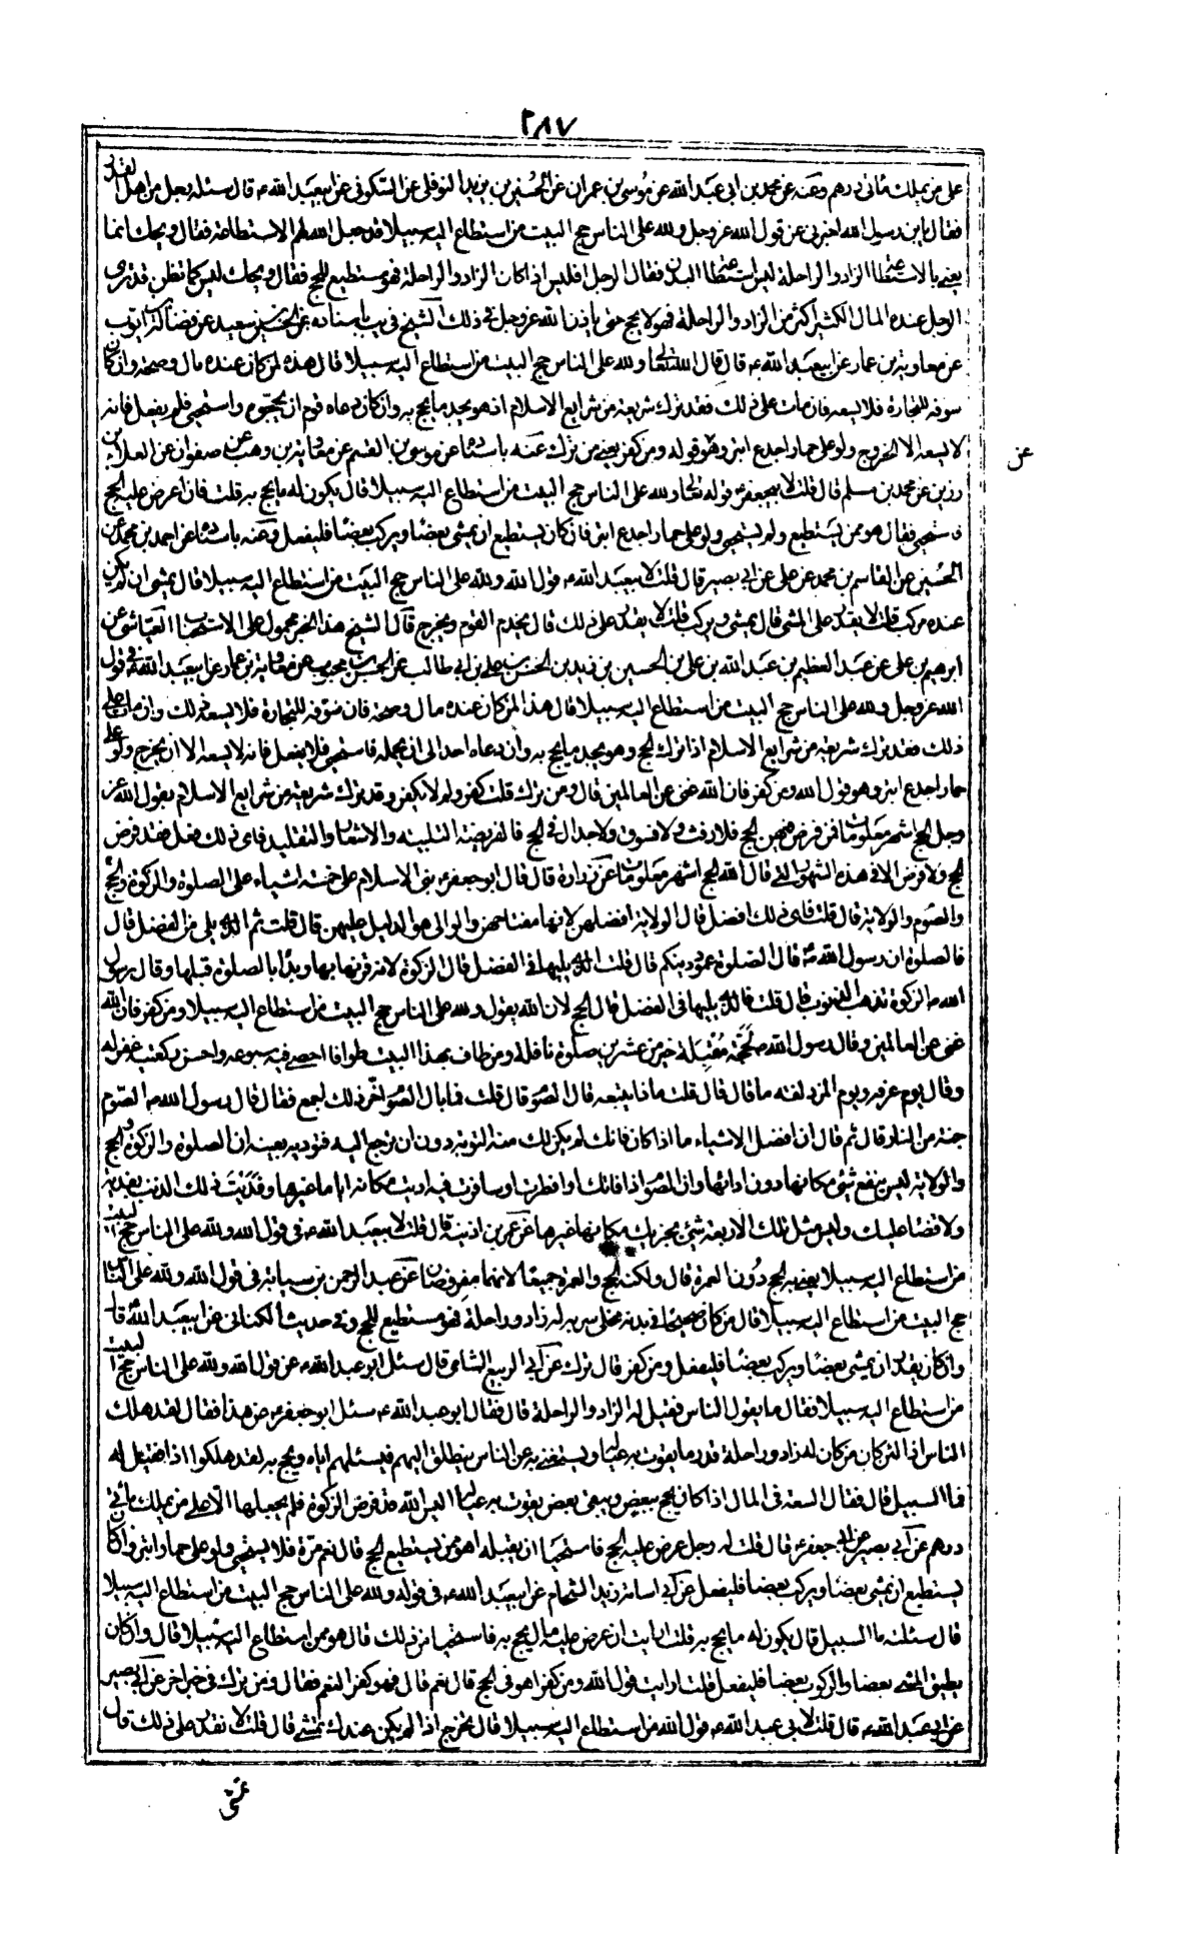 ٢٨٧
على من يملك مائتى درهم وعنه عن محمد بن ابى عبد الله عن موسى بن عمران عن الحسين بن يزيد النوفلى عن السكونى عن ابيعبد الله ع قال سئله رجل من اهل القدر
فقال يابن رسول الله اخبرنى عن قول الله عز وجل ولله على الناس حج البيت من استطاع اليه سبيلا قد جعل الله لهم الاستطاعة فقال ويحك انما
يعنى بالاستطاعة الزاد والراحلة ليس استطاعة البدن فقال الرجل افليس اذا كان الزاد والراحلة فهو مستطيع للحج فقال ويحك ليس كما تظن قد ترى
الرجل عنده المال الكثير اكثر من الزاد والراحلة فهو لا يحج حتى ياذن الله عز وجل فى ذلك الشيخ فى يب باسناده عن الحسين بن سعيد عن فضالة بن ايوب
عن معاوية بن عمار عن ابيعبد الله ع قال قال الله تعالى ولله على الناس حج البيت من استطاع اليه سبيلا قال هذه لمن كان عنده مال وصحة وان كان
سوفه للتجارة فلا يسعه فان مات على ذلك فقد ترك شريعة من شرايع الاسلام اذ هو يجد ما يحج به وان كان دعاه قوم ان يحجوه واستحيى فلم يفعل فانه
لا يسعه الا الخروج ولو على حمار اجدع ابتر وهو قوله ومن كفر يعنى من ترك عنه باسناده عن موسى بن القسم عن معاوية بن وهب عن صفوان عن العلاء بن
عن
رزين عن محمد بن مسلم قال قلت لابيجعفر ع قوله تعالى ولله على الناس حج البيت من استطاع اليه سبيلا قال يكون له ما يحج به قلت فان عرض عليه الحج
فاستحيى فقال هو ممن يستطيع ولم يستحيى ولو على حمار اجدع ابتر فان كان يستطيع ان يمشى بعضا ويركب بعضا فليفعل وعنه باسناده عن احمد بن محمد عن
الحسين عن القاسم بن محمد عن على عن ابى بصير قال قلت لابيعبد الله ع قول الله ولله على الناس حج البيت من استطاع اليه سبيلا قال يمشى ان لم يكن
عنده مركب قلت لا يقدر على المشى قال يمشى ويركب قلت لا يقدر على ذلك قال يخدم القوم ويخرج قال الشيخ هذا الخبر محمول على الاستحباب العياشى عن
ابرهيم بن على عن عبد العظيم بن عبد الله بن على بن الحسين بن زيد بن الحسن بن على بن ابى طالب عن الحسن بن محبوب عن معاوية بن عمار عن ابيعبد الله ع فى قول
الله عز وجل ولله على الناس حج البيت من استطاع اليه سبيلا قال هذا لمن كان عنده مال وصحة فان سوفه للتجارة فلا يسعه ذلك وان مات على
ذلك فقد ترك شريعة من شرايع الاسلام اذا ترك الحج وهو يجد ما يحج به وان دعاه احد الى ان يحمله فاستحيى فلا يفعل فانه لا يسعه الا ان يخرج ولو على
حمار اجدع ابتر وهو قول الله ومن كفر فان الله غنى عن العالمين قال ومن ترك قلت كفر ولم لا يكفر وقد ترك شريعة من شرايع الاسلام يقول الله عز
وجل الحج اشهر معلومات فمن فرض فيهن الحج فلا رفث ولا فسوق ولا جدال فى الحج فالفريضة التلبية والاشعار والتقليد فاى ذلك فعل فقد فرض
الحج ولا فرض الا فى هذه الشهور التى قال الله الحج اشهر معلومات عن زرارة قال قال ابو جعفر ع بنى الاسلام على خمسة اشياء على الصلوة والزكوة والحج
والصوم والولاية قال قلت فاى ذلك افضل قال الولاية افضلهن لانها مفتاحهن والوالى هو الدليل عليهن قال قلت ثم الذى يلى من الفضل قال
فالصلوة ان رسول الله ص قال الصلوة عمود دينكم قال قلت الذى يليها فى الفضل قال الزكوة لانه قرنها بها وبدأ بالصلوة قبلها وقال رسول
الله ص الزكوة تذهب الذنوب قال قلت فالذى يليها فى الفضل قال الحج لان الله يقول ولله على الناس حج البيت من استطاع اليه سبيلا ومن كفر فان الله
غنى عن العالمين وقال رسول الله ص لحجة متقبلة خير من عشرين صلوة نافلة ومن طاف بهذا البيت طوافا احصى فيه سبوعه واحسن ركعتيه غفر له
وقال يوم عرفة ويوم المزدلفة ما قال قال قلت ماذا يتبعه قال الصوم قال قلت فما بال الصوم اخر ذلك اجمع فقال قال رسول الله ص الصوم
جنة من النار قال ثم قال ان افضل الاشياء ما اذا كان فاتك لم يكن لك منه التوبة دون ان ترجع اليه فتوديه بعينه ان الصلوة والزكوة والحج
والولاية ليس ينفع شئ مكانها دون ادائها وان الصوم اذا فاتك او افطرت او سافرت فيه اديت مكانه اياما غيرها وفديت ذلك الذنب بفدية
ولا قضا عليك وليس مثل تلك الاربعة شئ يجزيك مكانها غيرها عن عمر بن اذينة قال قلت لابيعبد الله ع فى قول الله ولله على الناس حج البيت
من استطاع اليه سبيلا يعنى به الحج دون العمرة قال ولكنه الحج والعمرة جميعا لانهما مفروضان عن عبد الرحمن بن سيابة فى قول الله ولله على الناس
حج البيت من استطاع اليه سبيلا قال من كان صحيحا فى بدنه مخلى سربه له زاد وراحلة فهو مستطيع للحج وفى حديث الكنانى عن ابيعبد الله ع قال
وان كان يقدر ان يمشى بعضا ويركب بعضا فليفعل ومن كفر قال ترك عن ابى الربيع الشامى قال سئل ابو عبد الله ع عن قول الله ولله على الناس حج البيت
من استطاع اليه سبيلا فقال ما يقول الناس فقيل له الزاد والراحلة قال فقال ابو عبد الله ع سئل ابو جعفر ع عن هذا فقال لقد هلك
الناس اذا لئن كان من كان له زاد وراحلة قدر ما يقوت به عياله ويستغنى به عن الناس ينطلق اليهم فيسئلهم اياه ويحج به لقد هلكوا اذا فقيل له
فما السبيل قال فقال السعة فى المال اذا كان يحج ببعض ويبقى بعض يقوت به عياله اليس الله قد فرض الزكوة فلم يجعلها الا على من يملك مائتى
درهم عن ابى بصير عن ابى جعفر ع قال قلت له رجل عرض عليه الحج فاستحيا ان يقبله اهو ممن يستطيع الحج قال نعم مره فلا يستحيى ولو على حمار ابتر وان كان
يستطيع ان يمشى بعضا ويركب بعضا فليفعل عن ابى اسامة زيد الشحام عن ابيعبد الله ع فى قوله ولله على الناس حج البيت من استطاع اليه سبيلا
قال سئلته ما السبيل قال يكون له ما يحج به قلت ارايت ان عرض عليه مال يحج به فاستحيا من ذلك قال هو ممن استطاع اليه سبيلا قال وان كان
يطيق المشى بعضا والركوب بعضا فليفعل قلت ارايت قول الله ومن كفر اهو فى الحج قال نعم قال هو كفر النعم فقال ومن ترك فى خبر اخر عن ابى بصير
عن ابى عبد الله ع قال قلت لابى عبد الله ع قول الله من استطاع اليه سبيلا قال تخرج اذا لم يكن عندك تمشى قال قلت لا نقدر على ذلك قال
تمشى